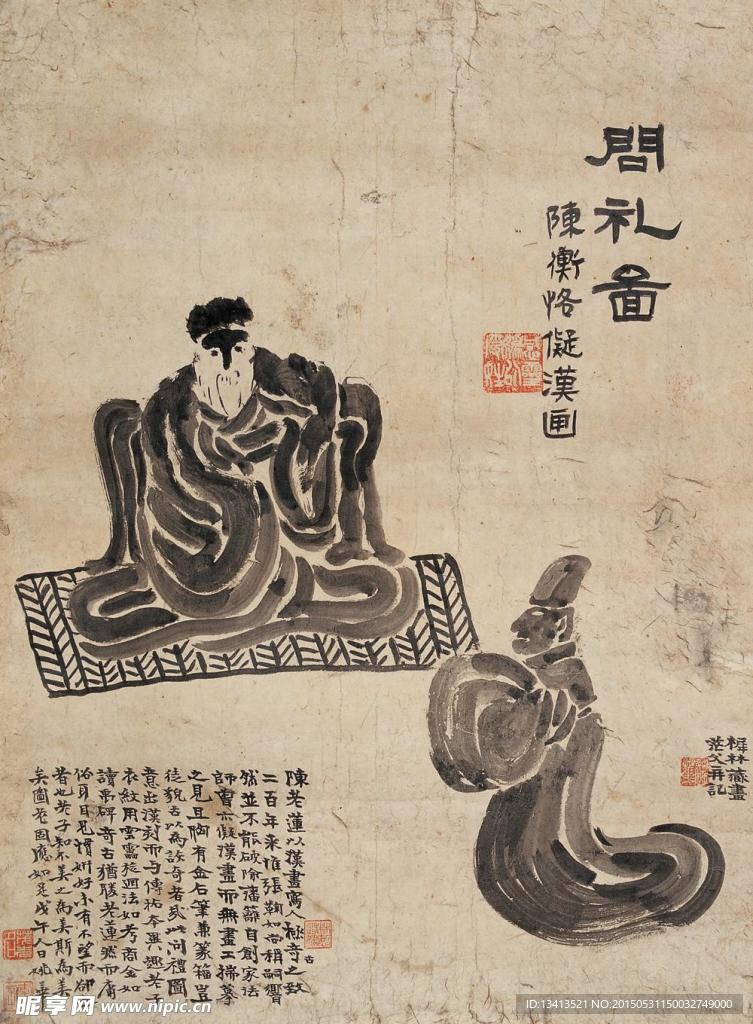 問礼圖
陳衡恪儗漢画
陳老蓮以漢畫寫人極奇之致
二百年来惟張鞠如尚稱嗣響
然並不能破除藩籬自創家法
師曾亦儗漢畫而無畫工揣摹
之見且胸有金石筆兼篆籀豈
徒貌古以為奇者哉此问禮圖
意出漢刻而与傳本異趣老子
衣紋用雲雷旋迴法如考商金如
讀禹碑奇古猶勝老蓮然而庸
俗耳目見慣妍好亦有不望而卻
者也老子知不美之為美斯為美
矣圖老固應如是戊午人日姚華
古
林藏畫
茫父再記
昵享网 www.nipic.cn
ID:13413521 NO:20150531150032749000